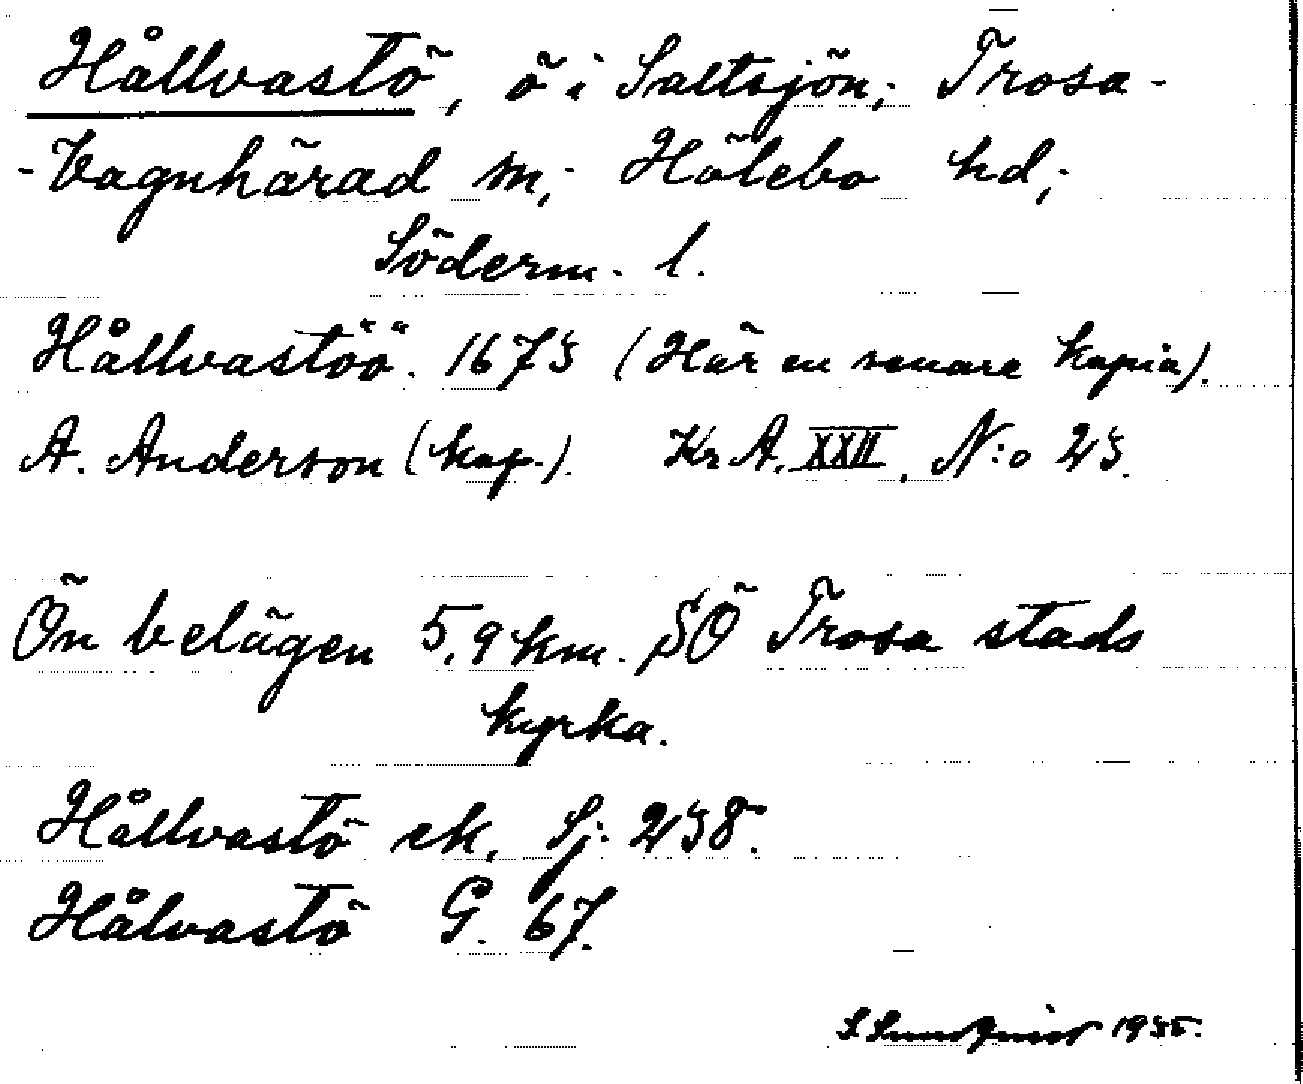 Hållvastö, ö i Saltsjön; Trosa-
-Vagnhärad sn; Hölebo hd;
Söderm. l.
Hållvastöö. 1673 (Här en senare kopia).
A. Anderson (kop.). Kr A. XXII. N:o 23.
Ön belägen 5,9 km. SÖ Trosa stads
kyrka.
Hållvastö ek. Sj. 238.
Hålvastö G. 67.
S Sundquist 1935.